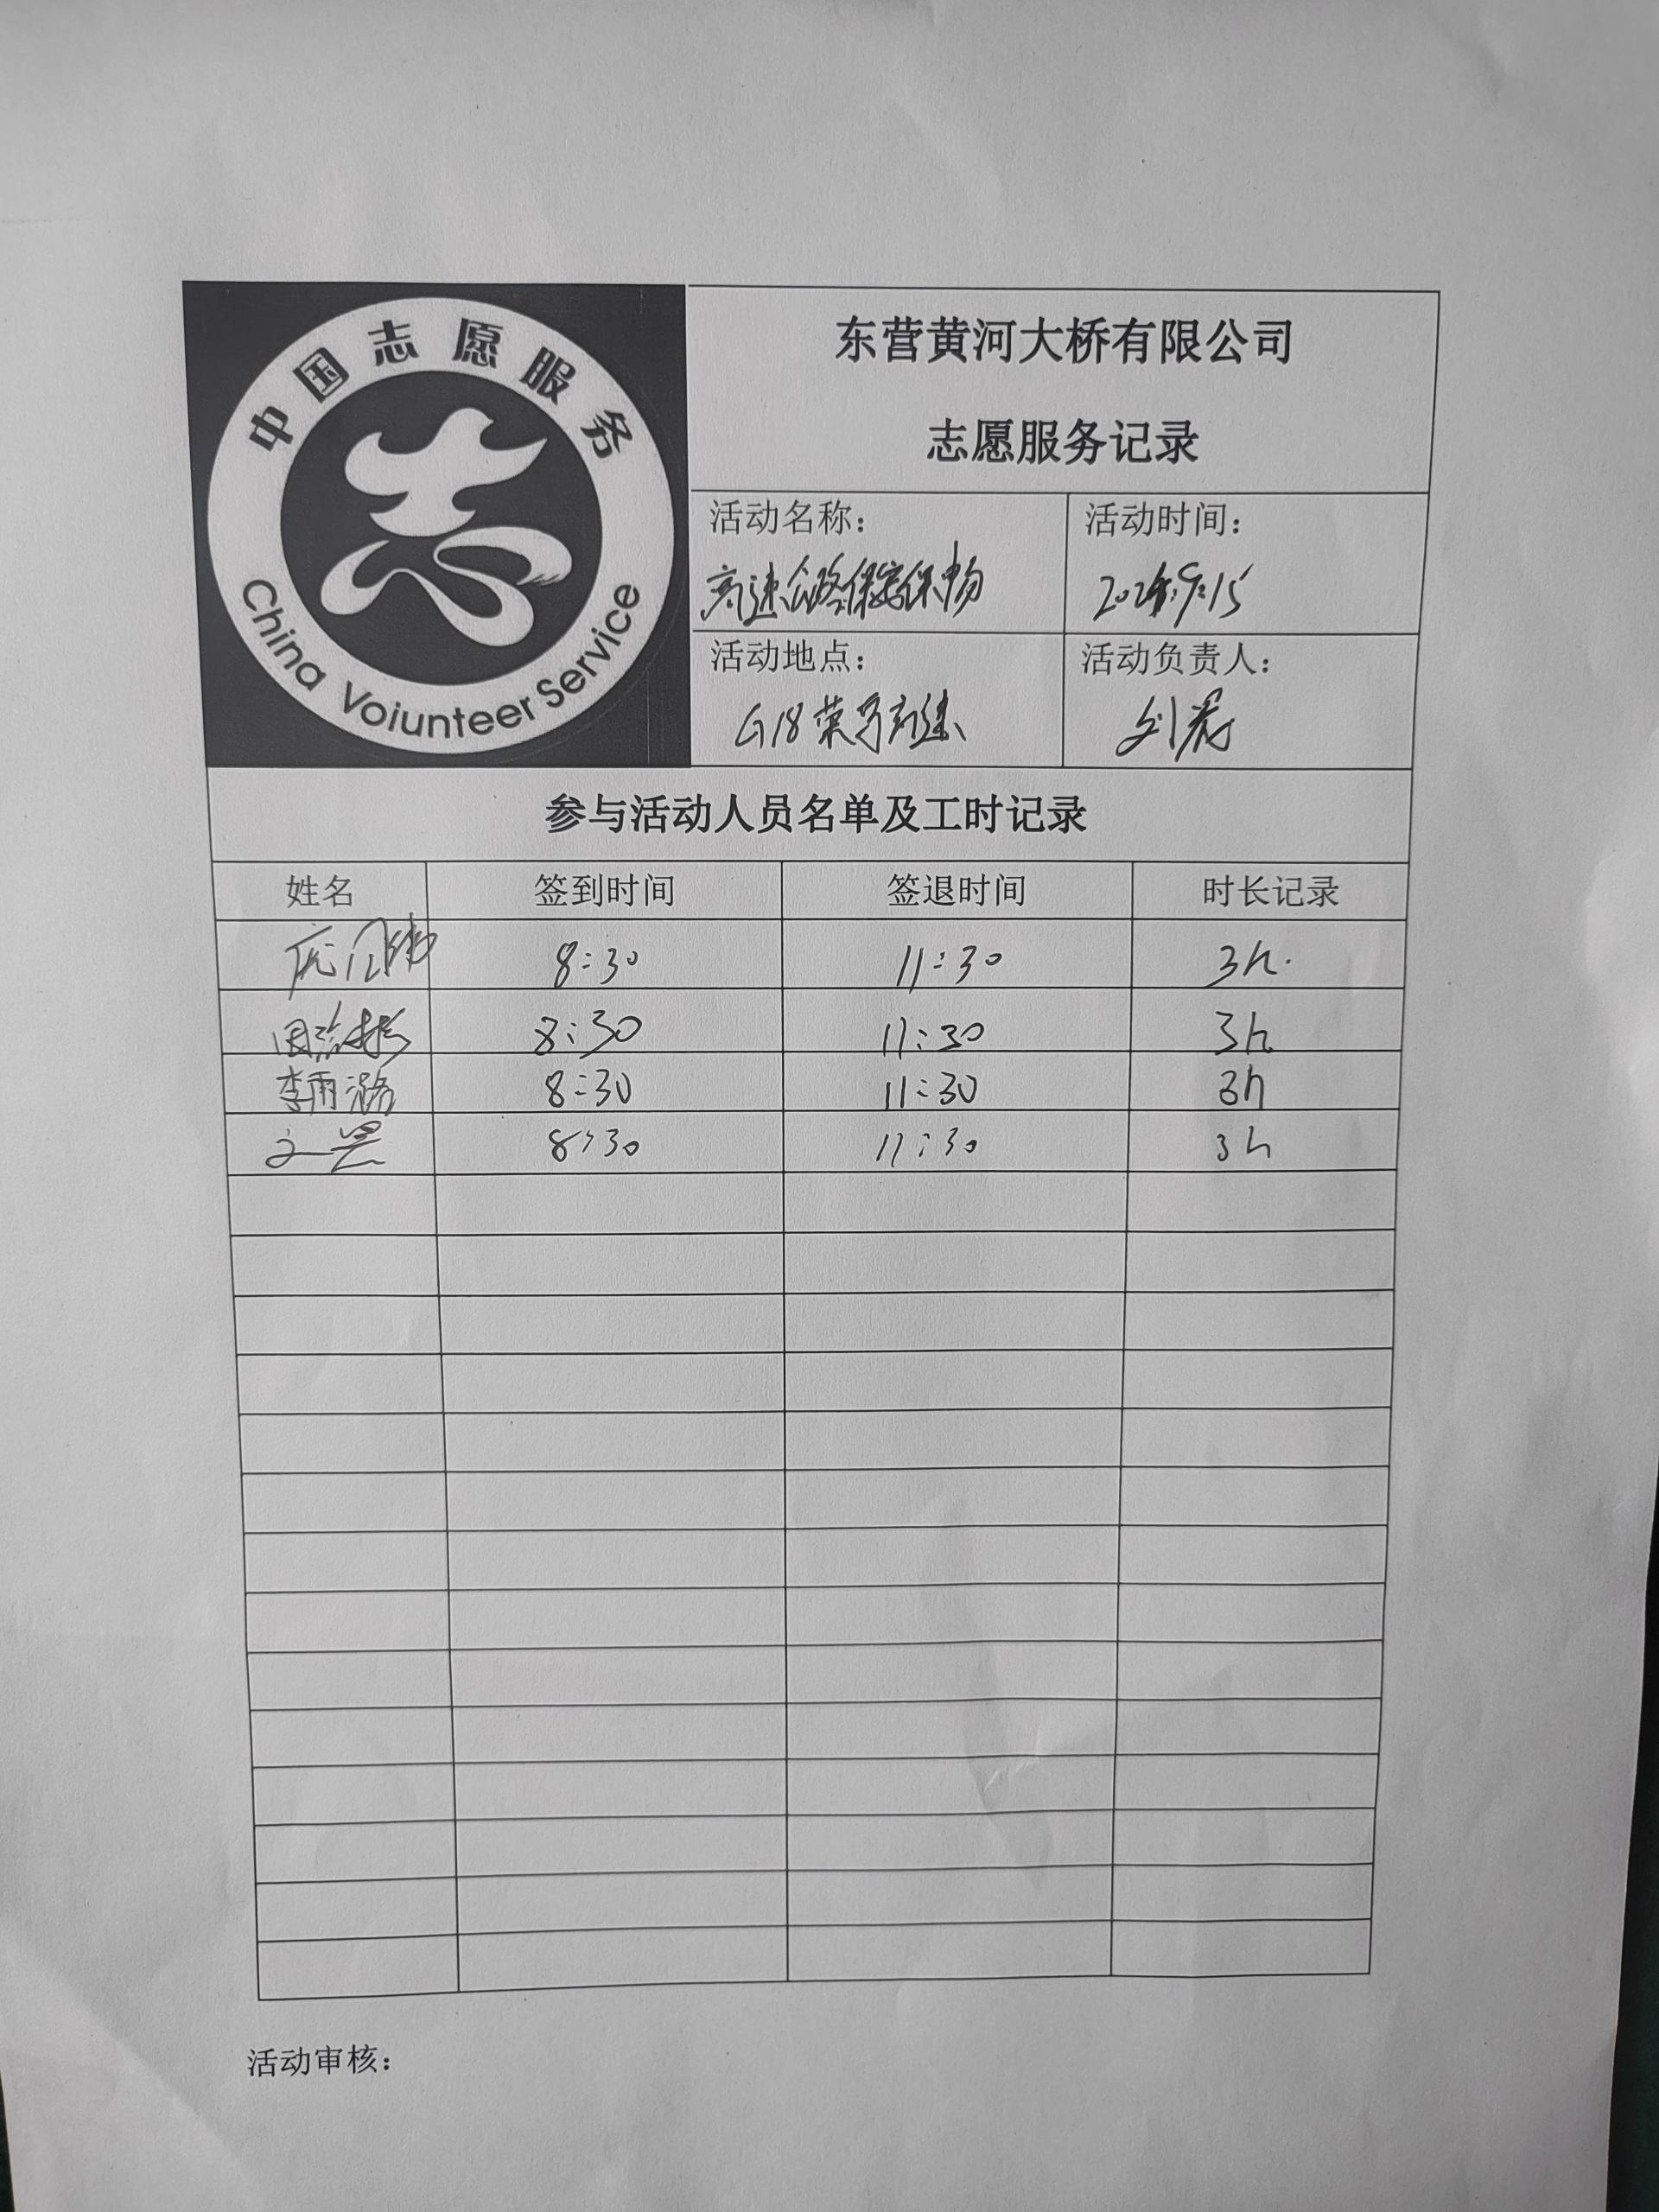 中国志愿服务
China Voiunteer Service
东营黄河大桥有限公司
志愿服务记录
活动名称：
高速公路保安保畅
活动时间：
9.15
活动地点：
G18荣乌高速
活动负责人：
刘
参与活动人员名单及工时记录
姓名 签到时间 签退时间 时长记录
8:30 11:30 3h.
8:30 11:30 3h
李雨潞 8:30 11:30 3h
8:30 11:30 3h
活动审核：